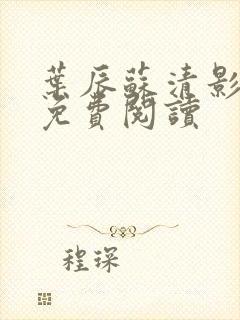 葉辰蘇清影
免費閱讀
程琛